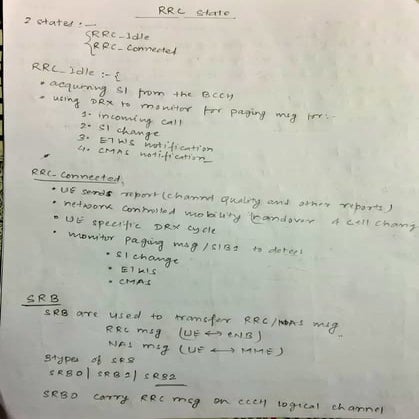 RRC State
2 states :—
{RRC_Idle
{RRC_Connected
RRC_Idle :- {
• acquiring SI from the BCCH
• using DRX to monitor for paging msg for:-
1- incoming call
2- SI change
3- ETWS notification
4- CMAS notification
RRC_Connected
• UE sends report (channel quality and other reports)
• network controlled mobility handover & cell chang
• UE specific DRX cycle
• monitor paging msg/SIB1 to detect
• SI change
• ETWS
• CMAS
SRB
SRB are used to transfer RRC/NAS msg
RRC msg (UE ↔ eNB)
NAS msg (UE ↔ MME)
3types of SRB
SRB0 | SRB1 | SRB2
SRB0 carry RRC msg on CCCH logical channel